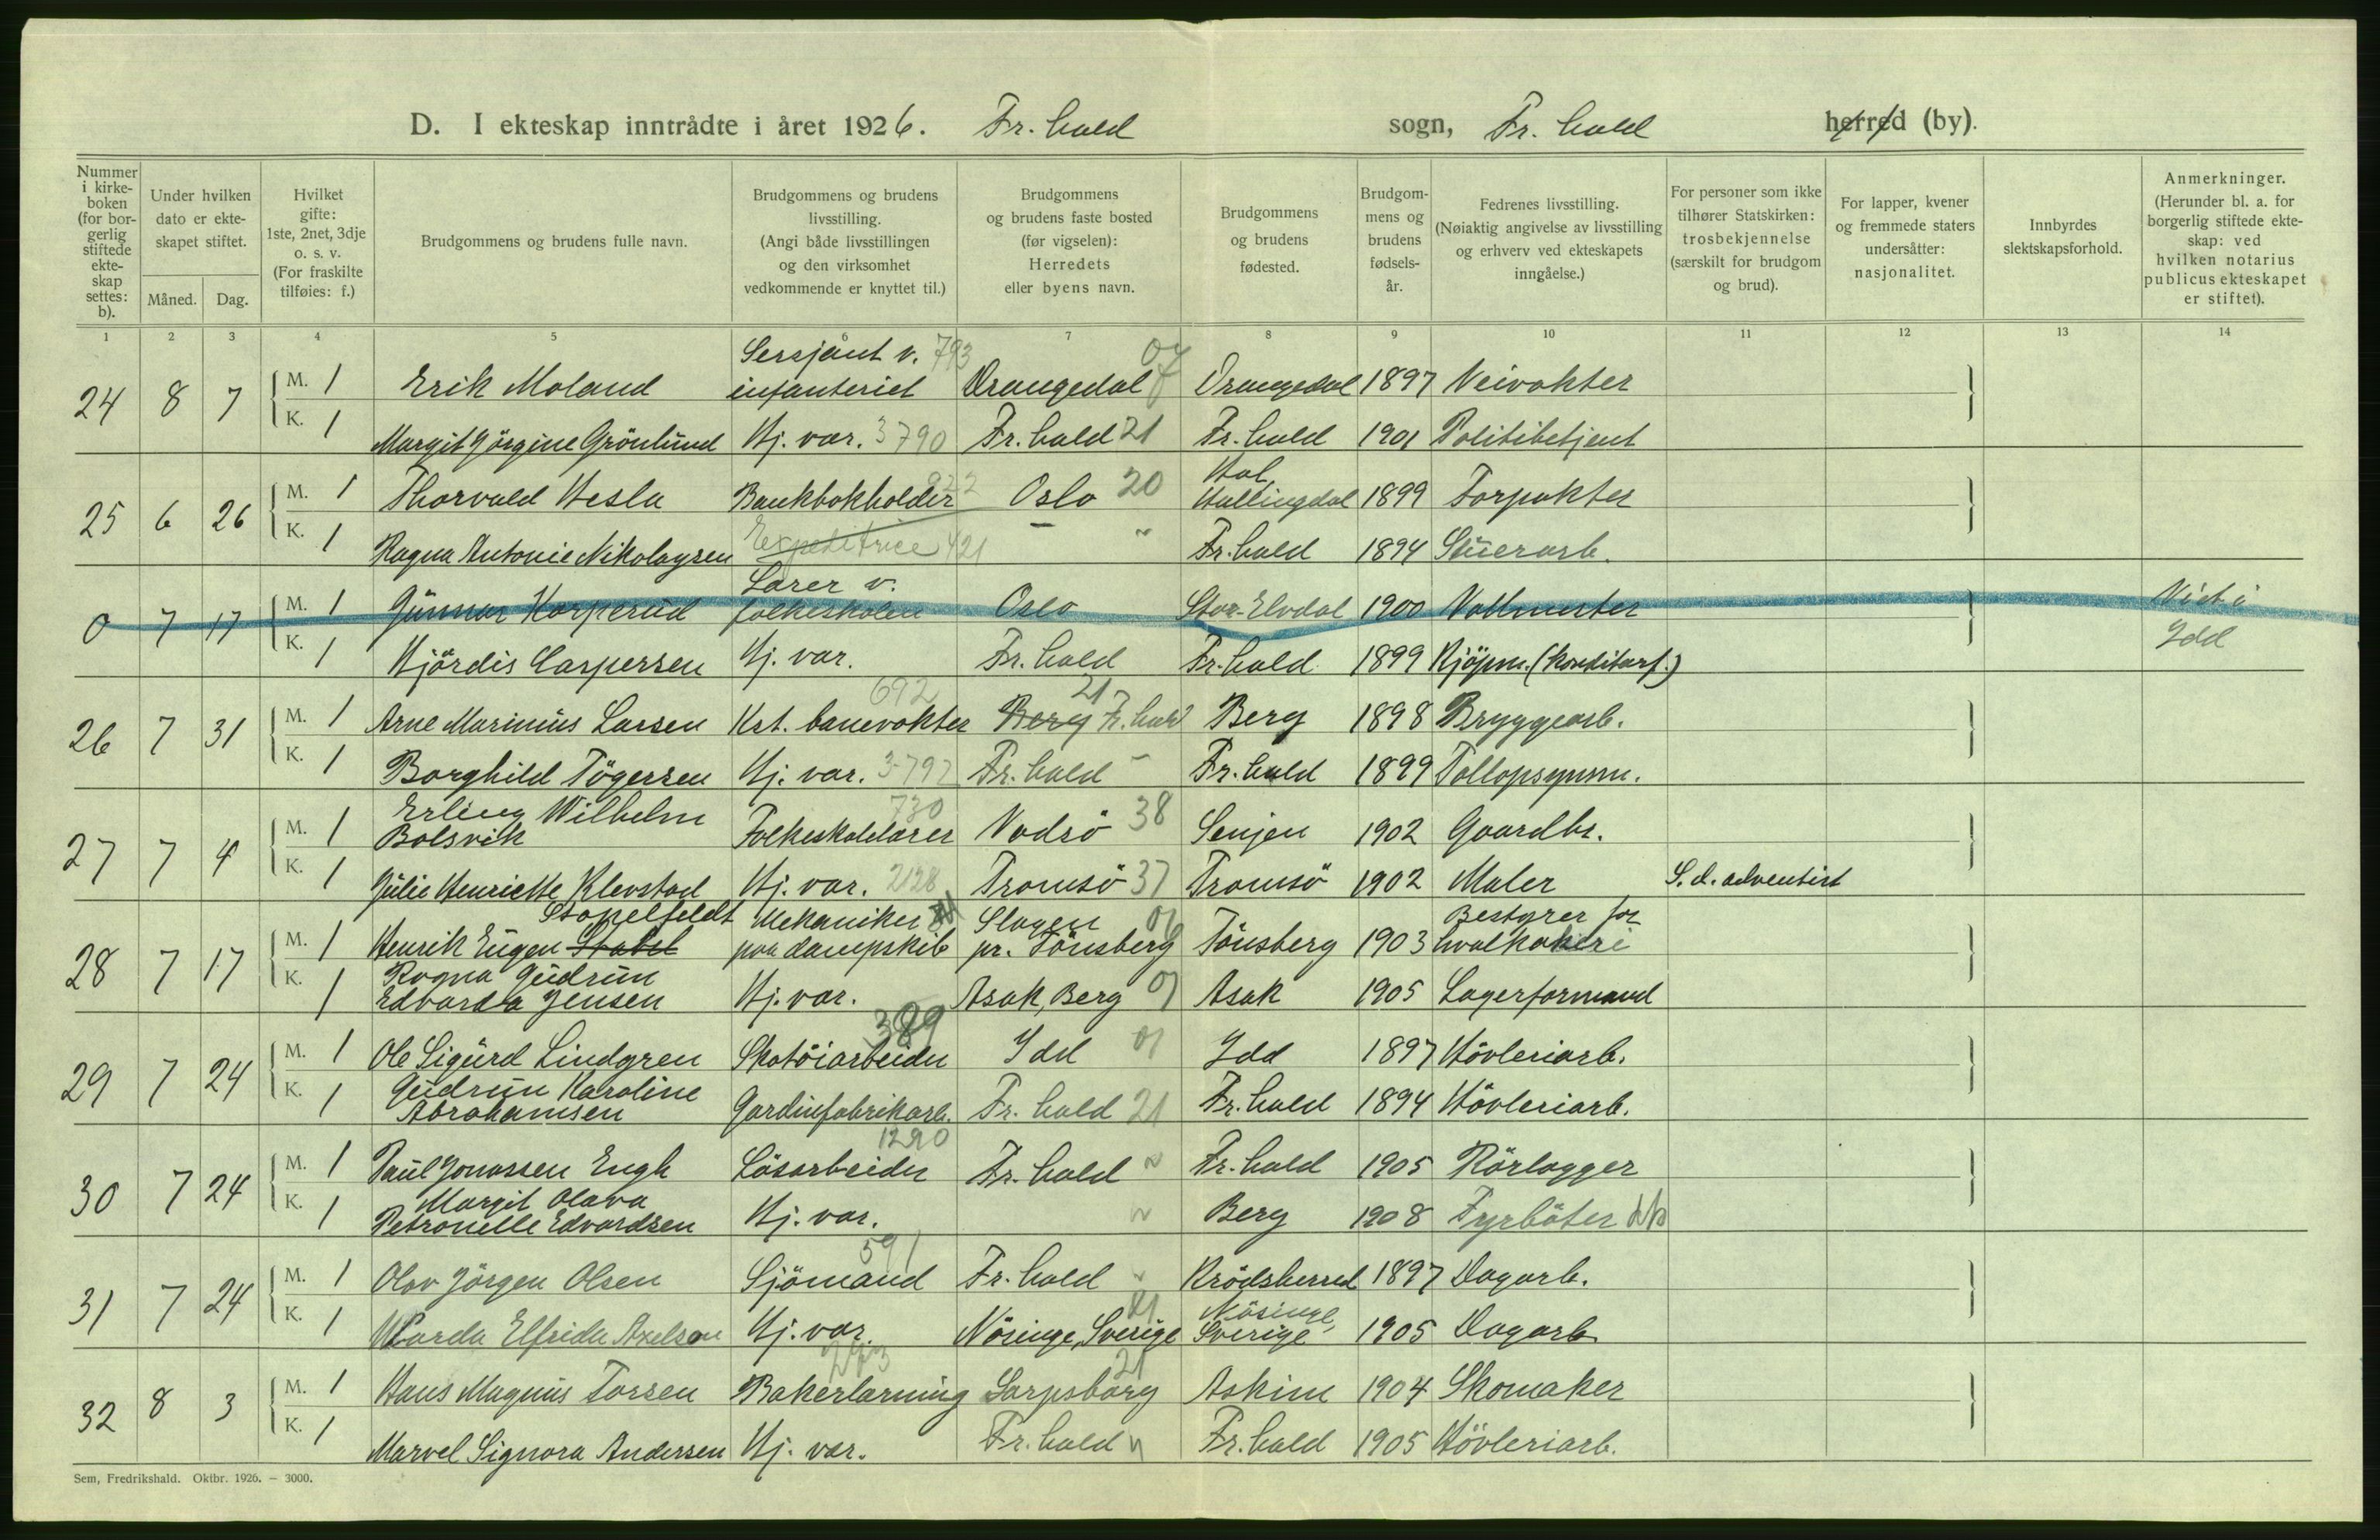 D. I ekteskap inntrådte i året 1926. Fr. hald sogn, Fr. hald herred (by).
Nummer i kirke-boken (for bor-gerlig stiftede ekte-skap settes: b).
Under hvilken dato er ekte-skapet stiftet.
Måned. Dag.
Hvilket gifte: 1ste, 2net, 3dje o. s. v. (For fraskilte tilføies: f.)
Brudgommens og brudens fulle navn.
Brudgommens og brudens livsstilling. (Angi både livsstillingen og den virksomhet vedkommende er knyttet til.)
Brudgommens og brudens faste bosted (før vigselen): Herredets eller byens navn.
Brudgommens og brudens fødested.
Brudgom-mens og brudens fødsels-år.
Fedrenes livsstilling. (Nøiaktig angivelse av livsstilling og erhverv ved ekteskapets inngåelse.)
For personer som ikke tilhører Statskirken: trosbekjennelse (særskilt for brudgom og brud).
For lapper, kvener og fremmede staters undersåtter: nasjonalitet.
Innbyrdes slektskapsforhold.
Anmerkninger. (Herunder bl. a. for borgerlig stiftede ekte-skap: ved hvilken notarius publicus ekteskapet er stiftet).
1 2 3 4 5 6 7 8 9 10 11 12 13 14
24 8 7 M. 1 Erik Moland Sersjant v. infanteriet 793 Drangedal 07 Drangedal 1897 Veivokter
K. 1 Margit Jörgine Grönlund Hj. vær. 3790 Fr. hald 21 Fr. hald 1901 Politibetjent
25 6 26 M. 1 Thorvald Hesla Bankbokholder 822 Oslo 20 Hol, Hallingdal 1899 Forpakter
K. 1 Ragna Antonie Nikolaysen Expeditrice 421 – " Fr. hald 1894 Stuerarb.
0 7 17 M. 1 Gunnar Korperud Lærer v. folkeskolen Oslo Stor-Elvdal 1900 Voktmester Viet i
K. 1 Hjördis Caspersen Hj. vær. Fr. hald Fr. hald 1899 Kjöpm. (konditorf.) Idd
26 7 31 M. 1 Arne Marinius Larsen Kst. banevokter 692 Berg Fr. hald 21 Berg 1898 Bryggearb.
K. 1 Borghild Tögersen Hj. vær. 3-792 Fr. hald – Fr. hald 1899 Tollopsynsm.
27 7 4 M. 1 Erling Wilhelm Bolsvik Folkeskolelærer 730 Vadsö 38 Senjen 1902 Gaardbr.
K. 1 Julie Henriette Klevstad Hj. vær. 2128 Tromsö 37 Tromsö 1902 Maler S. d. adventist
28 7 17 M. 1 Henrik Eugen Stabel Stapelfeldt Mekaniker paa dampskib Slagen pr. Tönsberg 07 Tönsberg 1903 Bestyrer for hvalkokeri
K. 1 Ragna Gudrun Edvarda Jensen Hj. vær. Asak, Berg 01 Asak 1905 Lagerformand
29 7 24 M. 1 Ole Sigurd Lindgren Skotöiarbeider 389 Idd 01 Idd 1897 Hövleriarb.
K. 1 Gudrun Karoline Abrahamsen Gardinfabrikarb. Fr. hald 21 Fr. hald 1894 Hövleriarb.
30 7 24 M. 1 Paul Jonassen Engh Lösarbeider 1290 Fr. hald " Fr. hald 1905 Rörlegger
K. 1 Margit Olava Petronelle Edvardsen Hj. vær. " Berg 1908 Fyrböter
31 7 24 M. 1 Olav Jörgen Olsen Sjömand 591 Fr. hald " Krödsherred 1897 Dagarb.
K. 1 Warda Elfrida Axelson Hj. vær. Nösinge, Sverige Nösinge, Sverige 1905 Dagarb
32 8 3 M. 1 Hans Magnus Torsen Bakerlærning 273 Sarpsborg 21 Askim 1904 Skomaker
K. 1 Marvel Signora Andersen Hj. vær. Fr. hald " Fr. hald 1905 Hövleriarb.
Sem, Fredrikshald. Oktbr. 1926. – 3000.